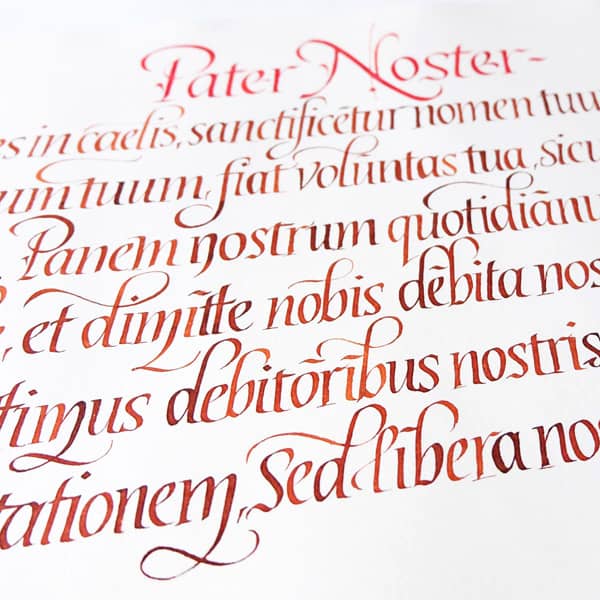 Pater Noster
es in caelis, sanctificētur nomen tuu
um tuum, fiat voluntas tua, sicu
Panem nostrum quotidiānu
, et dimitte nōbis dēbita nos
timus debitōribus nostris
tationem, Sed libera nos